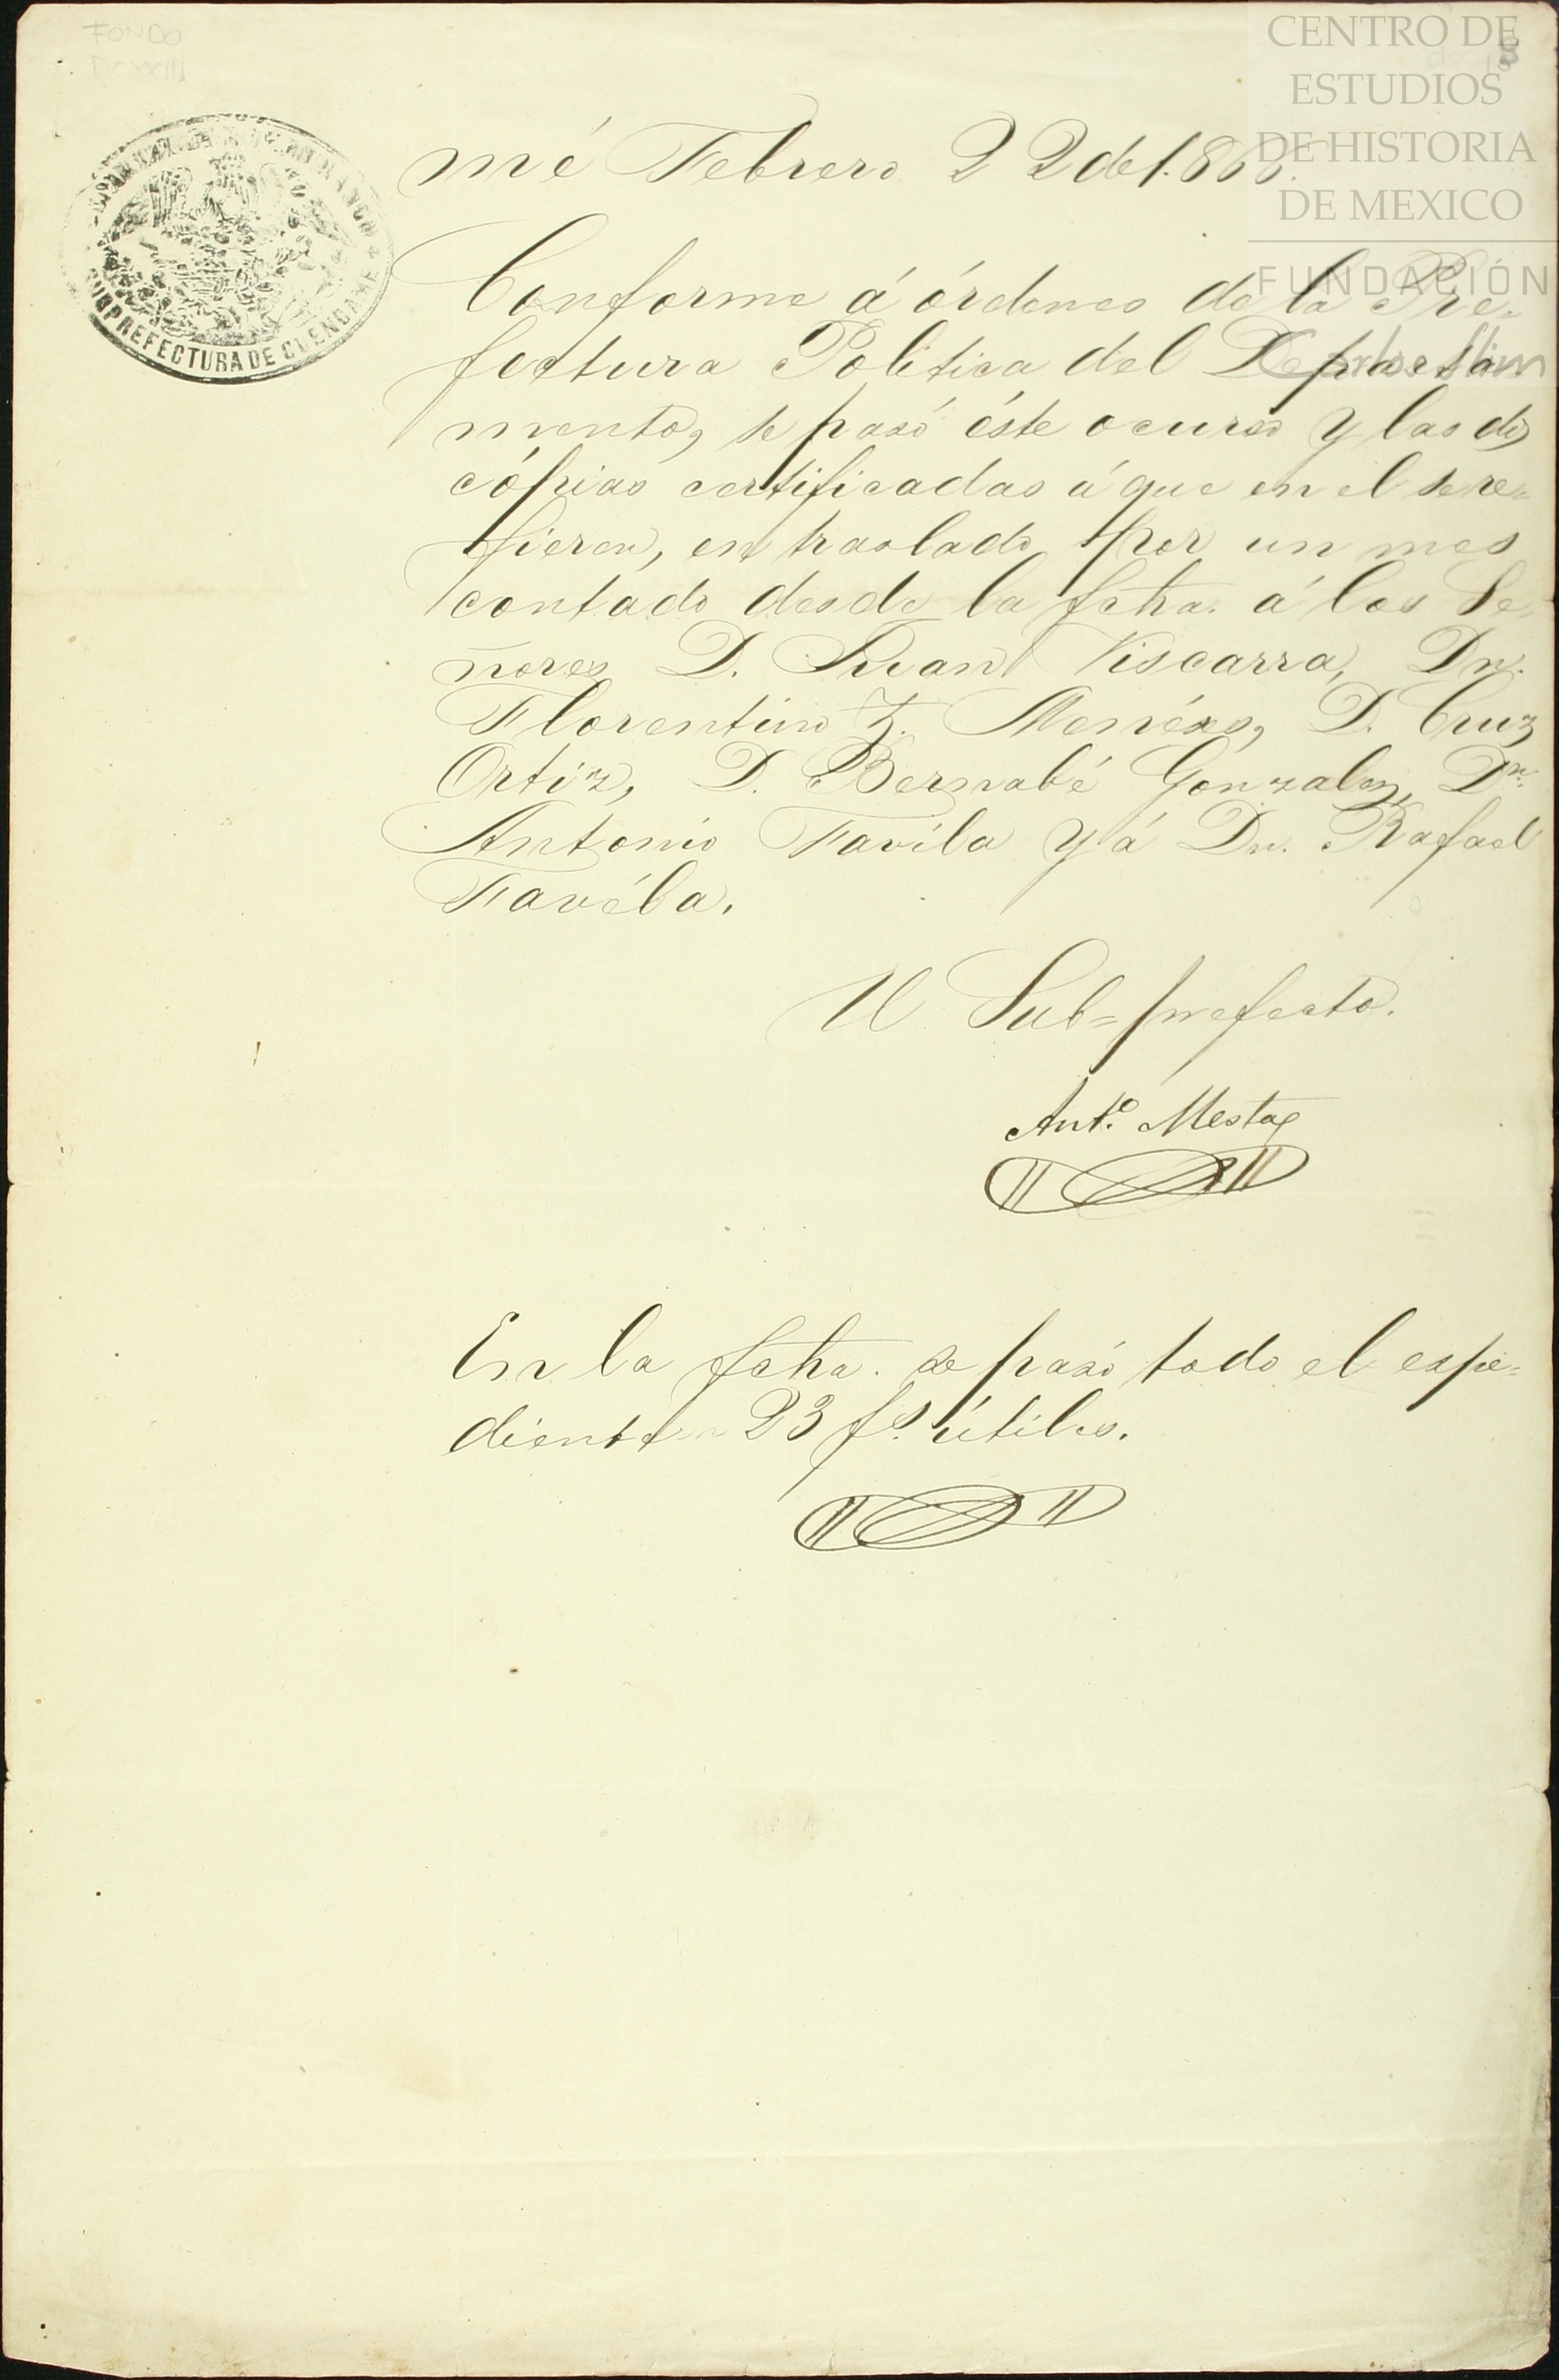 FONDO
DCXXIII
CENTRO DE
ESTUDIOS
DE HISTORIA
DE MEXICO
FUNDACIÓN
SUBPREFECTURA DE CUENCAME
mé Febrero 22 de 1.866.
Conforme á órdenes de la Pre-
fectura Politica del Departa
mento, se pasó éste ocurso y las dos
cópias certificadas á que en el se re-
fieren, en traslado por un mes
contado desde la fcha. á los Se-
ñores D. Juan Viscarra, Dn.
Florentino Z. Menéxes, D. Cruz
Ortiz, D. Bernabé Gonzalez, Dn.
Antonio Favíla y á Dn. Rafael
Favéla.
El Sub=prefecto.
Anto. Mestas
En la fcha. se pasó todo el espe-
diente 23 fs. útiles.